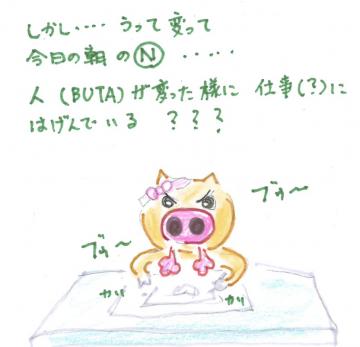 しかし‥‥ うって変って
今日の朝 の Ⓝ ‥‥‥
人 (BUTA) が変った様に 仕事(?)に
はげんでいる ? ? ?
ブゥ〜
ブゥ〜
カリ カリ